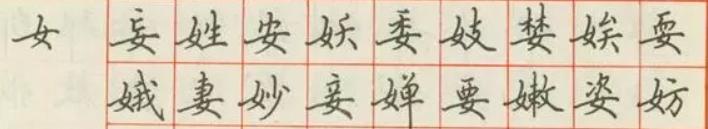 女 妄 姓 安 妖 委 妓 婪 娭 耍
娥 妻 妙 妾 婵 要 嫩 姿 妨